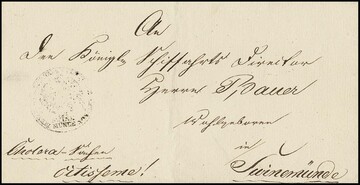 An
den Königl. Schiffahrts Director
Herrn Bauer
Wohlgeboren
in
Swinemünde
Cholera-Sachen
Citissime!